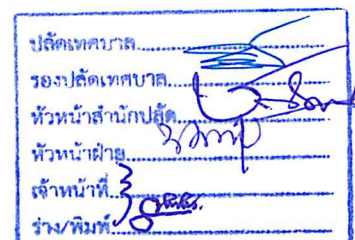 ปลัดเทศบาล
รองปลัดเทศบาล
หัวหน้าสำนักปลัด
หัวหน้าฝ่าย
เจ้าหน้าที่
ร่าง/พิมพ์